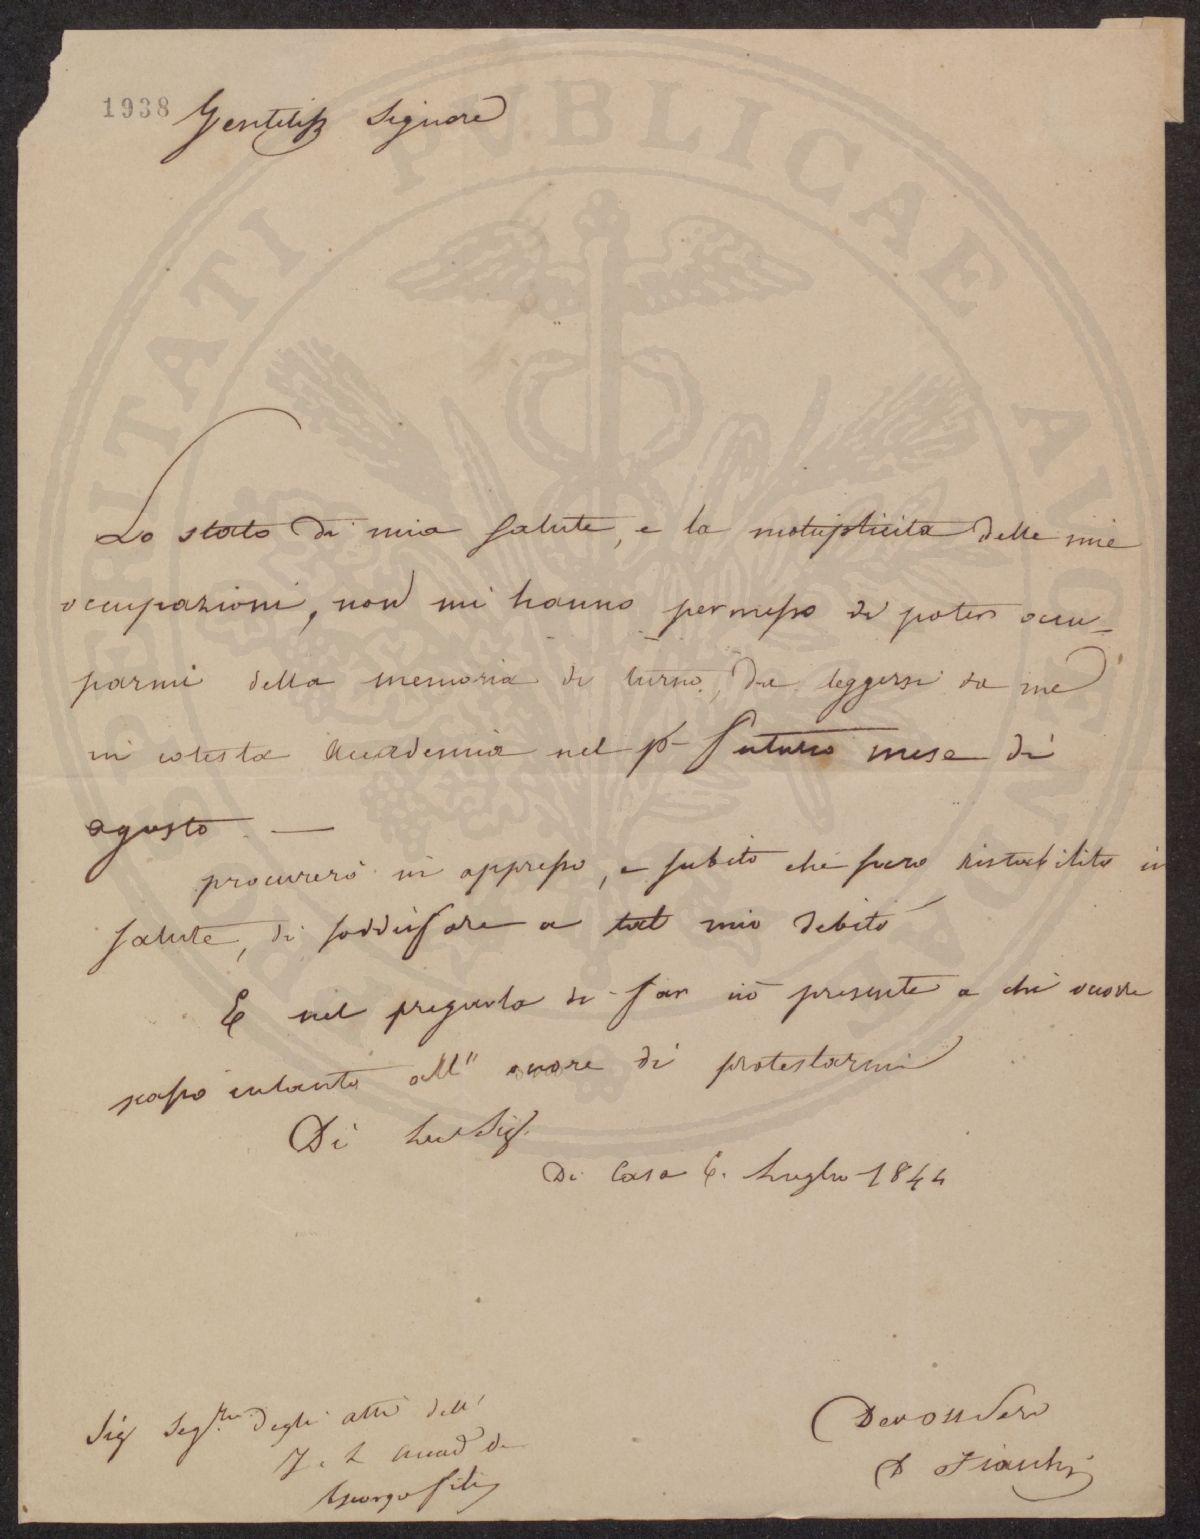 1938 Gentiliss Signore
Lo stato di mia salute, e la moltiplicita delle mie
occupazioni, non mi hanno permesso di poter occu-
parmi della memoria di turno, da leggersi da me
in cotesta Accademia nel p futuro mese di
agosto —
procurerò in appresso, e subito che sarò ristabilito in
salute, di soddisfare a tal mio debito
E nel pregarla di far ciò presente a chi occorre
passo intanto all' onore di protestarmi
Di Lei Sig.
Di Casa 6. Luglio 1844
Sig Seg.rio degli atti dell'
I. e R Accad dei
Georgofili
Devotiss Serv